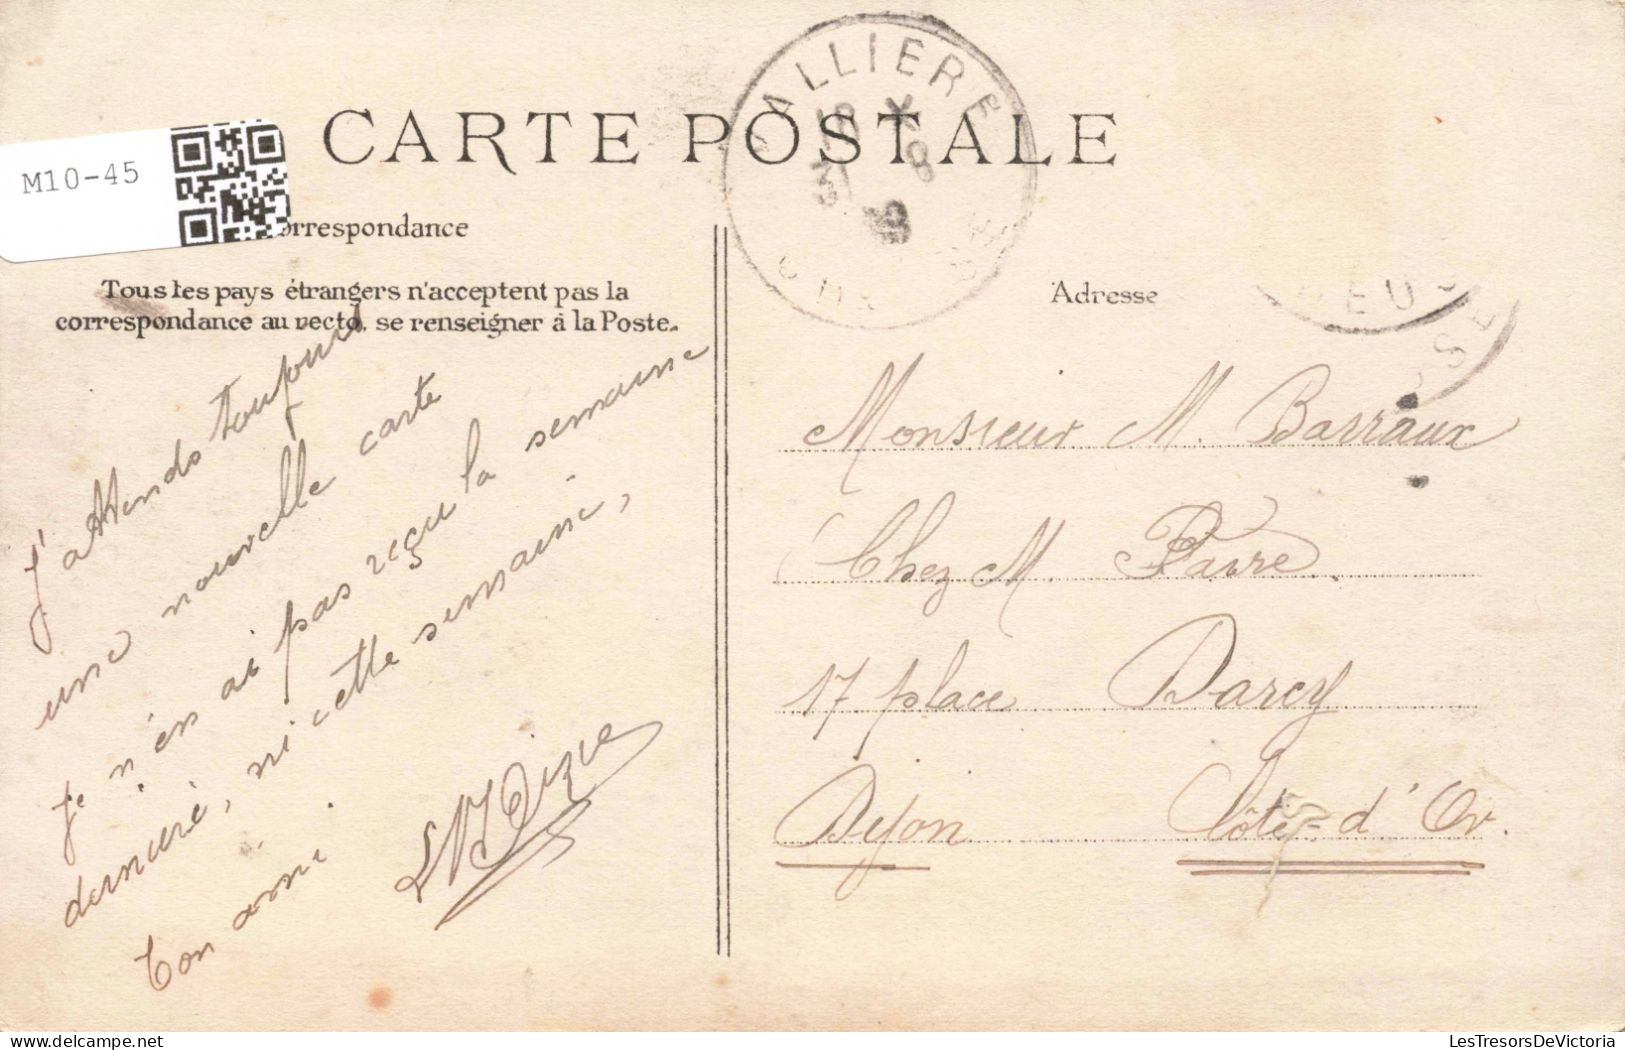 CARTE POSTALE
M10-45
orrespondance
Tous les pays étrangers n'acceptent pas la
correspondance au recto, se renseigner à la Poste.
Adresse
ALLIERE
J'attends toujours
une nouvelle carte
je n'en ai pas reçu la semaine
dernière, ni cette semaine,
Ton ami.
Monsieur M. Barraux
Chez M. Favre
17 place Darcy
Dijon Côte-d'Or.
LesTresorsDeVictoria
delcampe.net